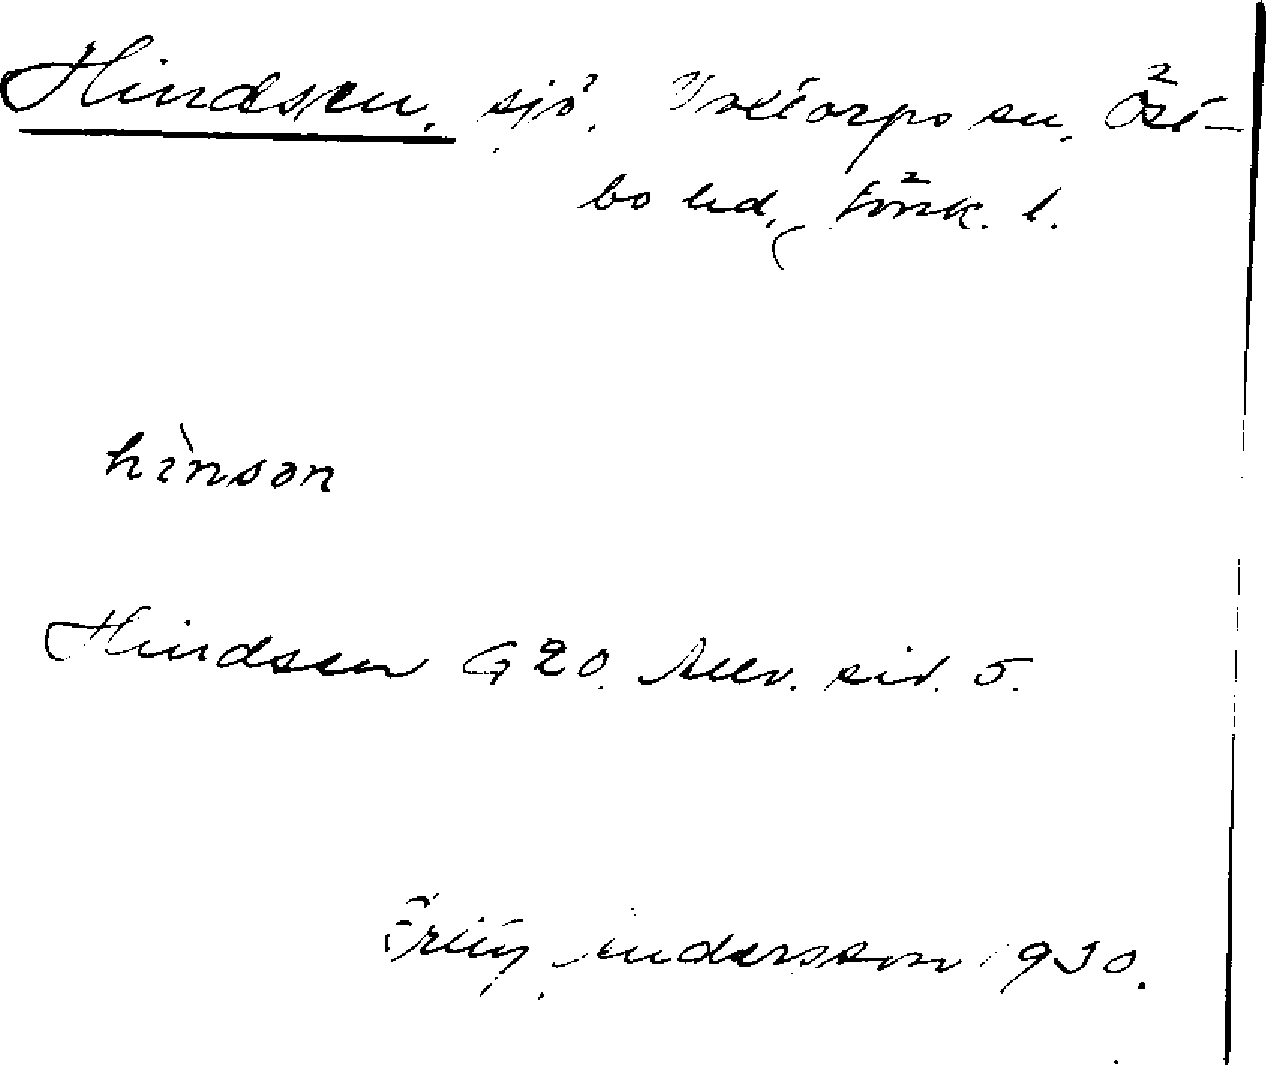 Hindsen, sjö, Voxtorps sn, Öst-
bo hd, Jönk. l.
hinsən
Hindsen G 20. Medv. sid. 5.
Fritz Andersson 1930.